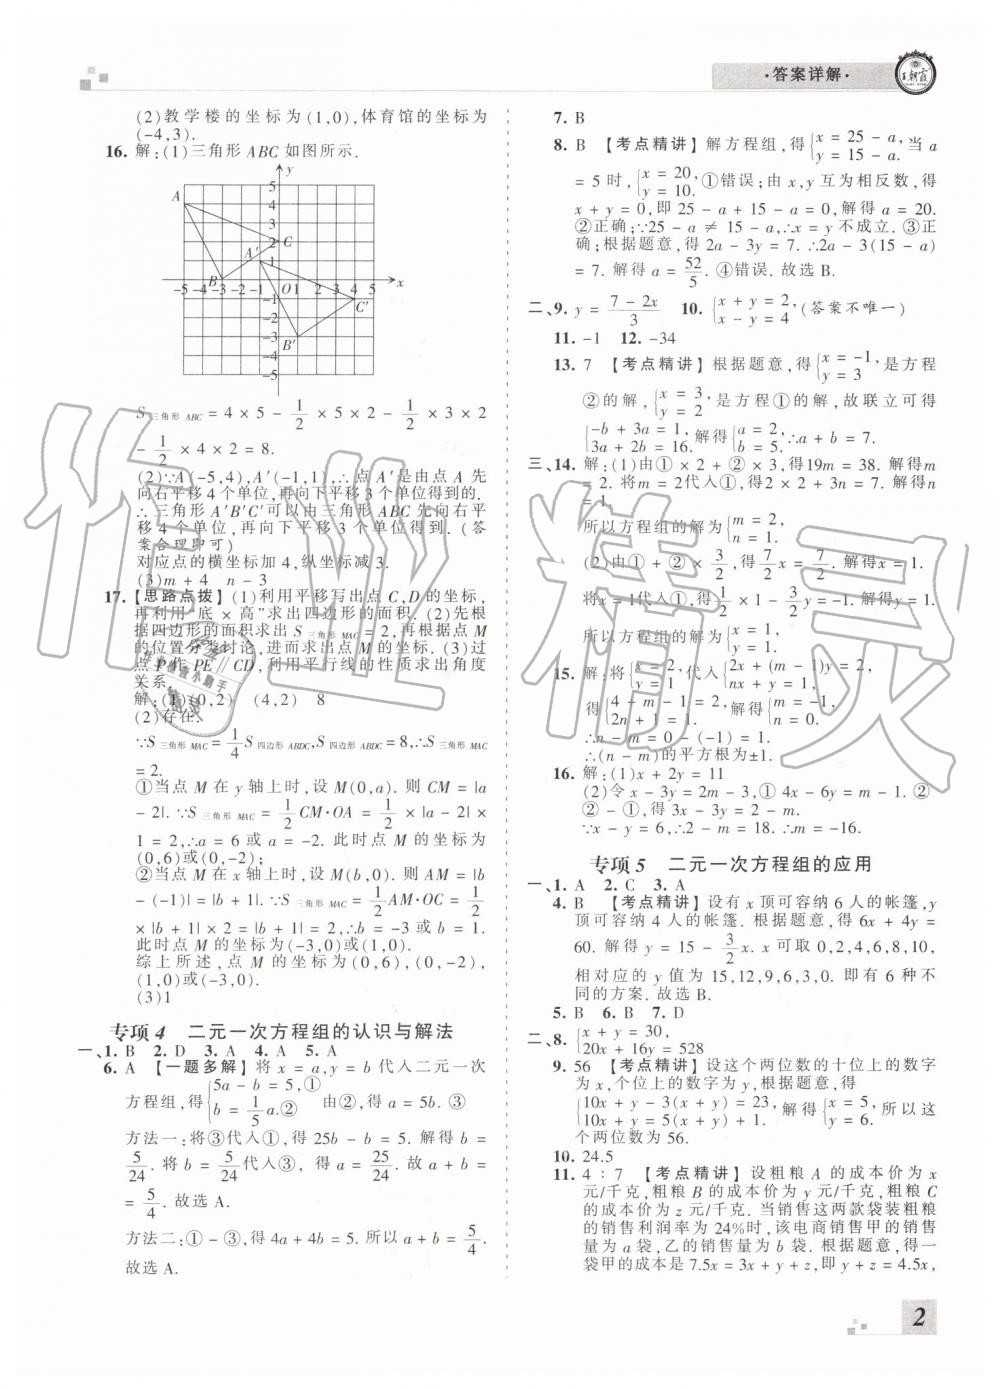 ·答案详解·
王朝霞
(2)教学楼的坐标为(1,0),体育馆的坐标为
(-4,3).
16. 解:(1)三角形 ABC 如图所示.
y
A
C
A′
B
O
x
C′
B′
S三角形 ABC = 4 × 5 - 1/2 × 5 × 2 - 1/2 × 3 × 2
- 1/2 × 4 × 2 = 8.
(2)∵A(-5,4),A′(-1,1),∴点 A′是由点 A 先
向右平移4个单位,再向下平移3个单位得到的.
∴三角形 A′B′C′可以由三角形 ABC 先向右平
移 4 个单位,再向下平移 3 个单位得到.(答
案合理即可)
对应点的横坐标加4,纵坐标减3.
(3)m + 4 n - 3
17.【思路点拨】(1)利用平移写出点 C,D 的坐标,
再利用“底 × 高”求出四边形的面积. (2)先根
据四边形的面积求出 S三角形 MAC = 2,再根据点 M
的位置分类讨论,进而求出点 M 的坐标. (3)过
点 P 作 PE∥CD,利用平行线的性质求出角度
关系.
解:(1)(0,2) (4,2) 8
(2)存在.
∵S三角形 MAC = 1/4 S四边形 ABDC,S四边形 ABDC = 8,∴S三角形 MAC
= 2.
①当点 M 在 y 轴上时,设 M(0,a). 则 CM = |a
- 2|. ∵S三角形 MAC = 1/2 CM·OA = 1/2 × |a - 2| ×
1 = 2,∴a = 6 或 a = -2. 此时点 M 的坐标为
(0,6)或(0,-2);
②当点 M 在 x 轴上时,设 M(b,0). 则 AM = |b
- (-1)| = |b + 1|. ∵S三角形 MAC = 1/2 AM·OC = 1/2
× |b + 1| × 2 = |b + 1| = 2,∴b = -3 或 b = 1.
此时点 M 的坐标为(-3,0)或(1,0).
综上所述,点 M 的坐标为(0,6),(0,-2),
(1,0)或(-3,0).
(3)1
专项 4 二元一次方程组的认识与解法
一、1. B 2. D 3. A 4. A 5. A
6. A 【一题多解】将 x = a,y = b 代入二元一次
方程组,得{5a - b = 5,① b = 1/5 a.② 由②,得 a = 5b. ③
方法一:将③代入①,得 25b - b = 5. 解得 b =
5/24. 将 b = 5/24代入③,得 a = 25/24. 故 a + b =
= 5/4. 故选 A.
方法二:① - ③,得 4a + 4b = 5. 所以 a + b = 5/4.
故选 A.
7. B
8. B 【考点精讲】解方程组,得{x = 25 - a, y = 15 - a. 当 a
= 5 时,{x = 20, y = 10. ①错误;由 x,y 互为相反数,得
x + y = 0,即 25 - a + 15 - a = 0,解得 a = 20.
②正确;∵25 - a ≠ 15 - a,∴x = y 不成立. ③正
确;根据题意,得 2a - 3y = 7. ∴2a - 3(15 - a)
= 7. 解得 a = 52/5. ④错误. 故选 B.
二、9. y = (7 - 2x)/3 10. {x + y = 2, x - y = 4 (答案不唯一)
11. -1 12. -34
13. 7 【考点精讲】根据题意,得{x = -1, y = 3 是方程
②的解,{x = 3, y = 2 是方程①的解,故联立可得
{-b + 3a = 1, 3a + 2b = 16. 解得{a = 2, b = 5. ∴a + b = 7.
三、14. 解:(1)由① × 2 + ② × 3,得19m = 38. 解得m
= 2. 将 m = 2代入①,得 2 × 2 + 3n = 7. 解得n
= 1.
所以方程组的解为{m = 2, n = 1.
(2)由① + ② × 3/2,得 7/2 x = 7/2. 解得 x = 1.
将x = 1代入①,得 1/2 × 1 - 3/2 y = -1. 解得y = 1.
所以方程组的解为{x = 1, y = 1.
15. 解:将{x = 2, y = 1 代入{2x + (m - 1)y = 2, nx + y = 1,
得{4 + m - 1 = 2, 2n + 1 = 1. 解得{m = -1, n = 0.
∴n - m = 0 - (-1) = 1.
∴(n - m)的平方根为±1.
16. 解:(1)x + 2y = 11
(2)令 x - 3y = 2m - 3,① 4x - 6y = m. ②
② - ①,得 3x - 3y = 2 - m.
∵x - y = 6,∴2 - m = 18. ∴m = -16.
专项 5 二元一次方程组的应用
一、1. A 2. C 3. A
4. B 【考点精讲】设有 x 顶可容纳 6 人的帐篷,y
顶可容纳 4 人的帐篷. 根据题意,得 6x + 4y =
60. 解得 y = 15 - 3/2 x. x 可取 0,2,4,6,8,10,
相对应的 y 值为 15,12,9,6,3,0. 即有 6 种不
同的方案. 故选 B.
5. B 6. B 7. D
二、8. {x + y = 30, 20x + 16y = 528
9. 56 【考点精讲】设这个两位数的十位上的数字
为 x,个位上的数字为 y,根据题意,得
{10x + y - 3(x + y) = 23, 10x + y - 5(x + y) = 1, 解得{x = 5, y = 6. 所以这
个两位数为 56.
10. 24.5
11. 4 : 7 【考点精讲】设粗粮 A 的成本价为 x
元/千克,粗粮 B 的成本价为 y 元/千克,粗粮 C
的成本价为 z 元/千克. 当销售这两款袋装粗粮
的销售利润率为 24%时,该电商销售甲的销售
量为 a 袋,乙的销售量为 b 袋. 根据题意,得一
袋甲的成本是 7.5x = 3x + y + z,即 y + z = 4.5x,
2
作业精灵